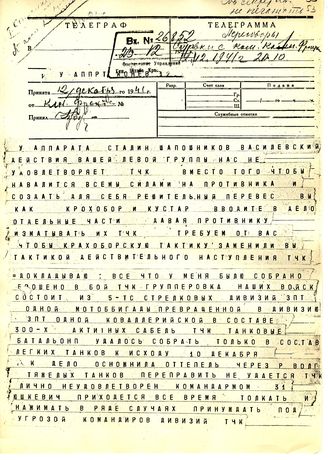 ТЕЛЕГРАФ
ТЕЛЕГРАММА
Вх. №
26852
Переговоры
12/XII.1941г 20.10
У АППРТА
Принял 12/декабря 1941 г.
от
Кал фронт №
Принял
Разр.
Счет слов
Подана
Служебные отметки
У АППАРАТА СТАЛИН ШАПОШНИКОВ ВАСИЛЕВСКИЙ
ДЕЙСТВИЯ ВАШЕЙ ЛЕВОЙ ГРУППЫ НАС НЕ
УДОВЛЕТВОРЯЕТ ТЧК ВМЕСТО ТОГО ЧТОБЫ
НАВАЛИТСЯ ВСЕМЫ СИЛАМЫ НА ПРОТИВНИКА И
СОЗДАТЬ ДЛЯ СЕБЯ РЕШИТЕЛЬНЫЙ ПЕРЕВЕС ВЫ
КАК КРОХОБОР И КУСТАР ВВОДИТЕ В ДЕЛО
ОТДЕЛЬНЫЕ ЧАСТИ ДАВАЯ ПРОТИВНИКУ
ИЗМАТЫВАТЬ ИХ ТЧК ТРЕБУЕМ ОТ ВАС
ЧТОБЫ КРАХОБОРСКУЮ ТАКТИКУ ЗАМЕНИЛИ ВЫ
ТАКТИКОЙ ДЕЙСТВИТЕЛЬНОГО НАСТУПЛЕНИЯ ТЧК
ДОКЛАДЫВАЮ: ВСЕ ЧТО У МЕНЯ БЫЛО СОБРАНО
БРОШЕНО В БОЙ ТЧК ГРУППИРОВКА НАШИХ ВОЙСК
СОСТОИТ ИЗ 5-ТС СТРЕЛКОВЫХ ДИВИЗИЙ ЗПТ
ОДНОЙ МОТОБРИГАДЫ ПРЕВРАЩЕННОЙ В ДИВИЗИЮ
ЗПТ ОДНОЙ КОВАЛЛЕРИЙСКОЙ В СОСТАВЕ
300-Х АКТИВНЫХ САБЕЛЬ ТЧК ТАНКОВЫЕ
БАТАЛЬОНЫ УДАЛОСЬ СОБРАТЬ ТОЛЬКО В СОСТАВЕ
ЛЕГКИХ ТАНКОВ К ИСХОДУ 10 ДЕКАБРЯ
ДЕЛО ОСЛОЖНИЛА ОТТЕПЕЛЬ ЧЕРЕЗ Р ВОЛГУ
ТЯЖЕЛЫХ ТАНКОВ ПЕРЕПРАВИТЬ НЕ УДАЕТСЯ ТЧК
ЛИЧНО НЕУДОВЛЕТВОРЕН КОМАНДАРМОМ 31
ЮШКЕВИЧ ПРИХОДЕТСЯ ВСЕ ВРЕМЯ ТОЛКАТЬ И
НАЖИМАТЬ В РЯДЕ СЛУЧАЯХ ПРИНУЖДАТЬ ПОД
УГРОЗОЙ КОМАНДИРОВ ДИВИЗИЙ ТЧК